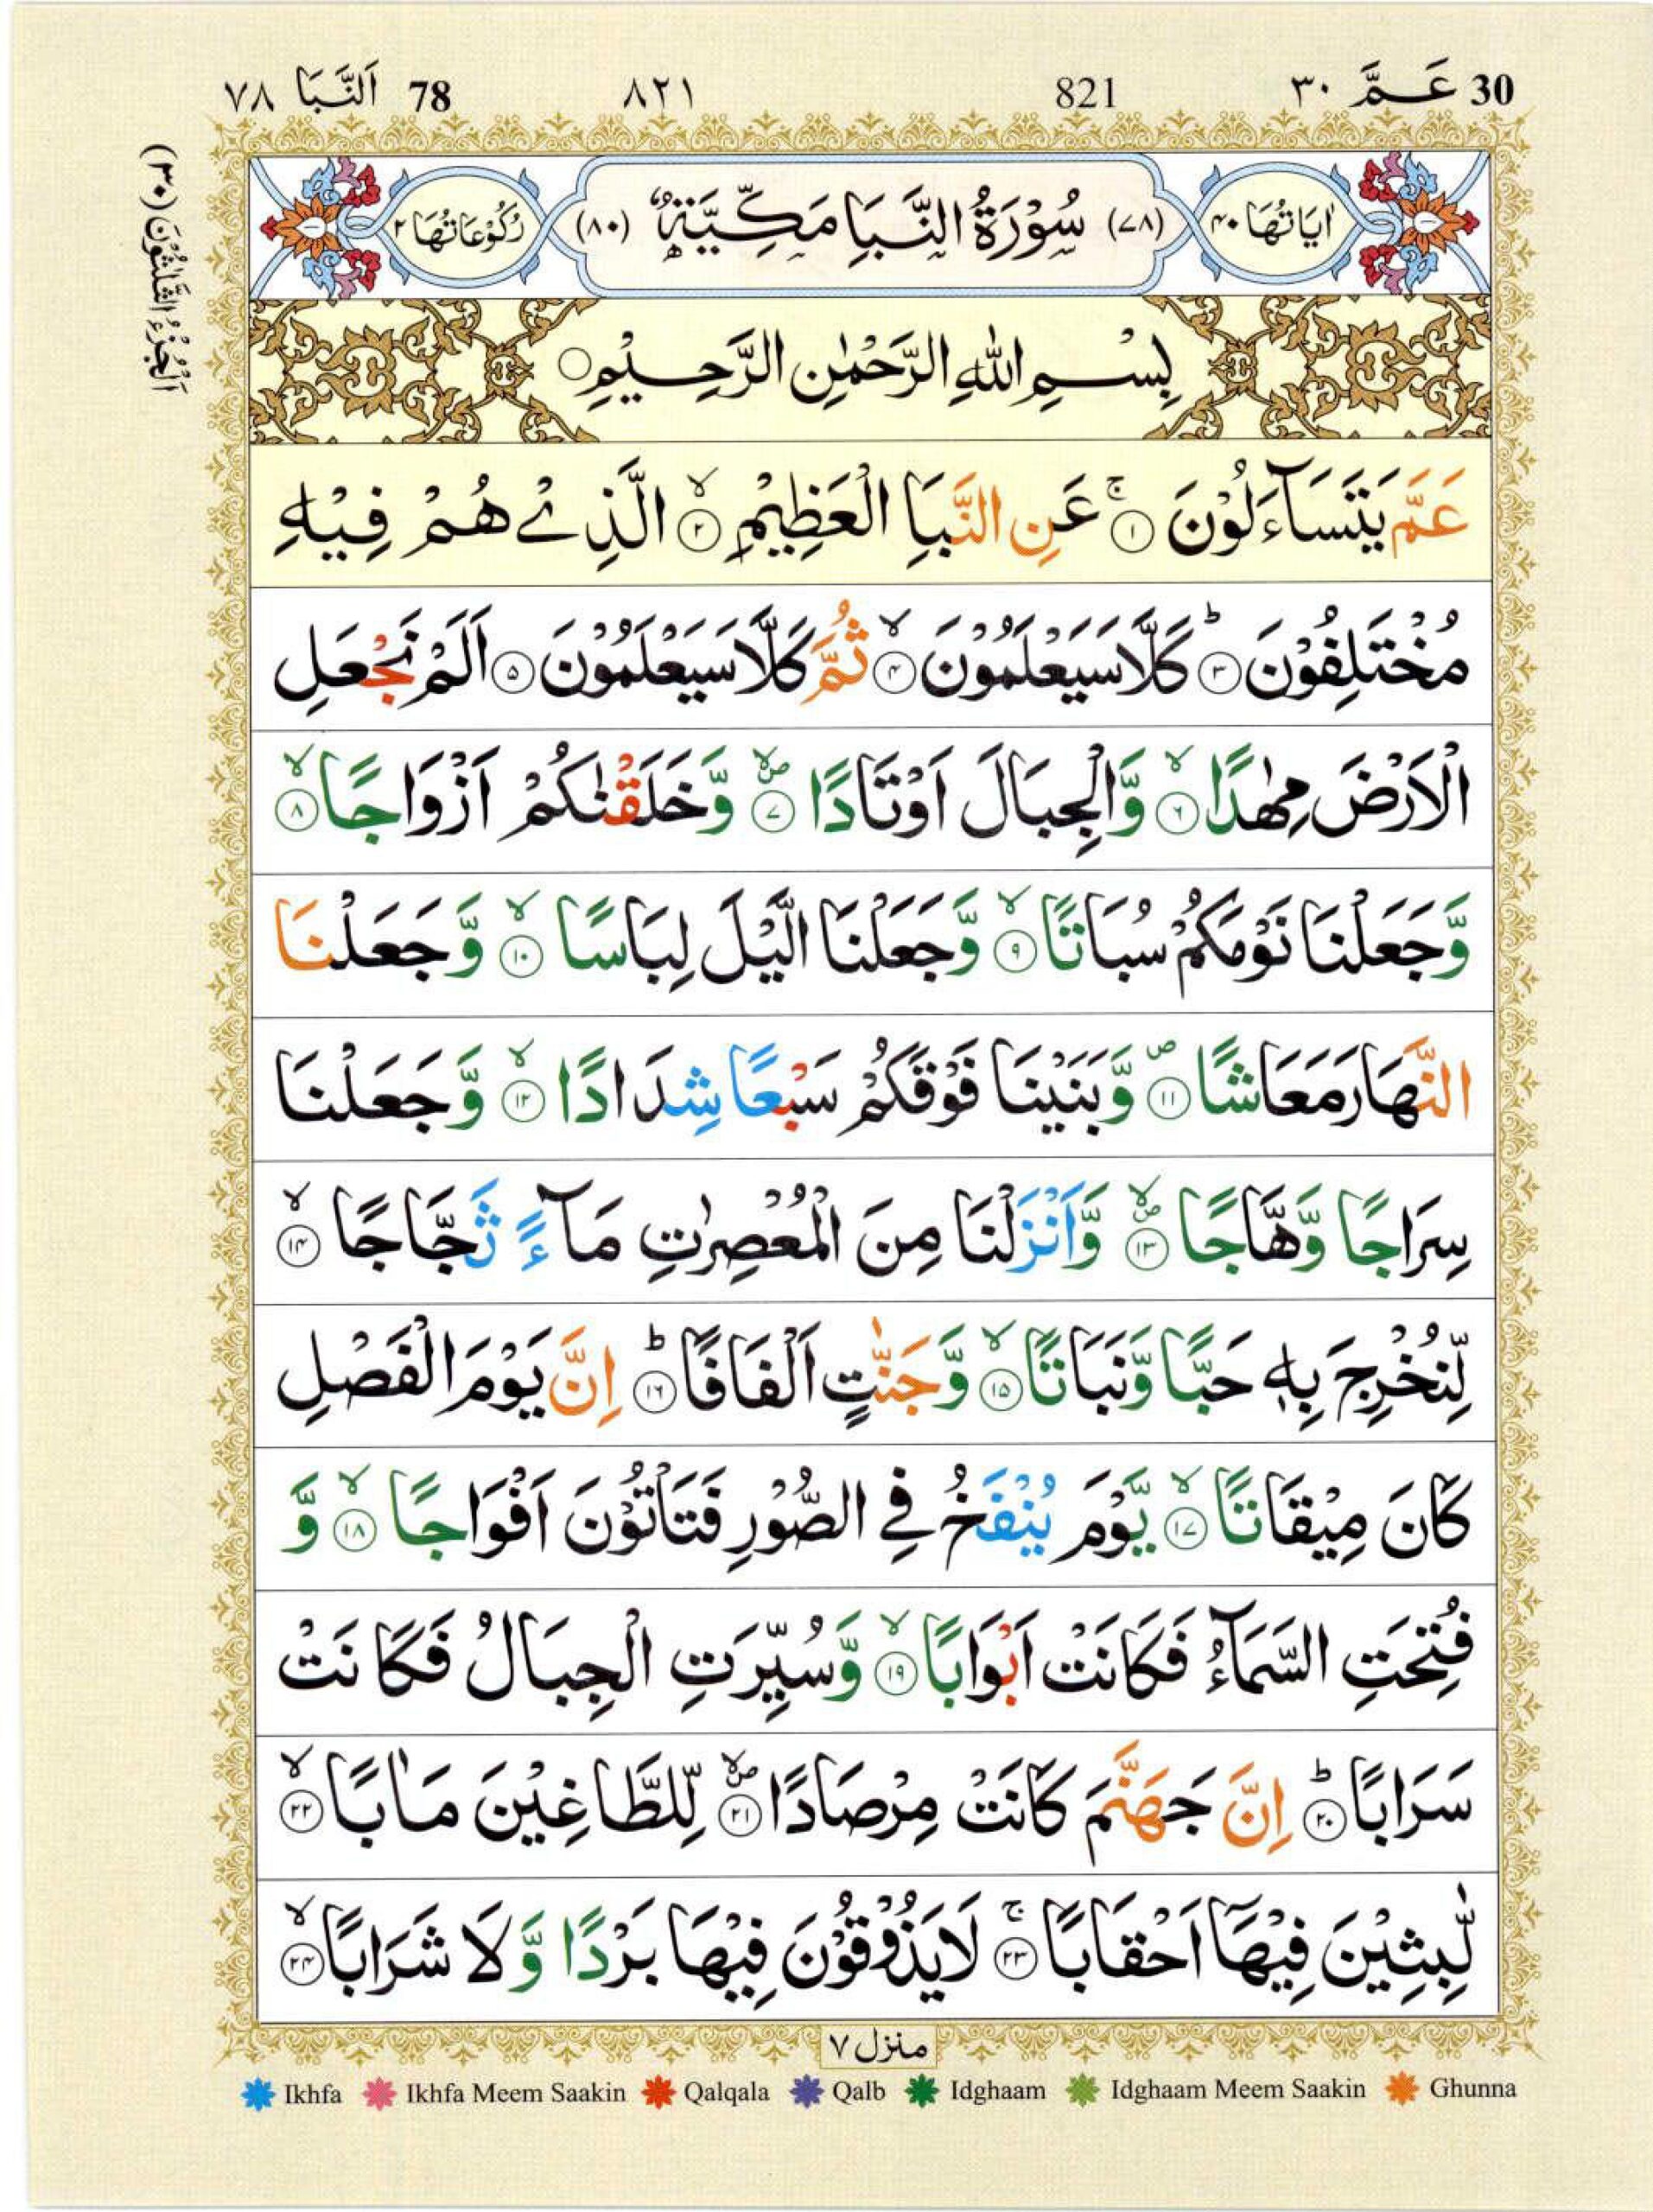 30 عَمَّ ٣٠ 821 ٨٢١ 78 اَلنَّبَا ٧٨
اَلْجُزْءُ الثَّلٰثُوْنَ (٣٠)
اٰيَاتُهَا ٤٠ (٧٨) سُوْرَةُ النَّبَاِ مَكِّيَّةٌ (٨٠) رُكُوْعَاتُهَا ٢
بِسْمِ اللّٰهِ الرَّحْمٰنِ الرَّحِيْمِ ○
عَمَّ يَتَسَآءَلُوْنَ ۚ ١ عَنِ النَّبَاِ الْعَظِيْمِ ۙ ٢ الَّذِيْ هُمْ فِيْهِ
مُخْتَلِفُوْنَ ؕ ٣ كَلَّا سَيَعْلَمُوْنَ ۙ ٤ ثُمَّ كَلَّا سَيَعْلَمُوْنَ ٥ اَلَمْ نَجْعَلِ
الْاَرْضَ مِهٰدًا ۙ ٦ وَّالْجِبَالَ اَوْتَادًا ۪ۙ ٧ وَّخَلَقْنٰكُمْ اَزْوَاجًا ۙ ٨
وَّجَعَلْنَا نَوْمَكُمْ سُبَاتًا ۙ ٩ وَّجَعَلْنَا الَّيْلَ لِبَاسًا ۙ ١٠ وَّجَعَلْنَا
النَّهَارَ مَعَاشًا ۪ ١١ وَّبَنَيْنَا فَوْقَكُمْ سَبْعًا شِدَادًا ۙ ١٢ وَّجَعَلْنَا
سِرَاجًا وَّهَّاجًا ۪ۙ ١٣ وَّاَنْزَلْنَا مِنَ الْمُعْصِرٰتِ مَآءً ثَجَّاجًا ۙ ١٤
لِّنُخْرِجَ بِهٖ حَبًّا وَّنَبَاتًا ۙ ١٥ وَّجَنّٰتٍ اَلْفَافًا ؕ ١٦ اِنَّ يَوْمَ الْفَصْلِ
كَانَ مِيْقَاتًا ۙ ١٧ يَّوْمَ يُنْفَخُ فِي الصُّوْرِ فَتَاْتُوْنَ اَفْوَاجًا ۙ ١٨ وَّ
فُتِحَتِ السَّمَآءُ فَكَانَتْ اَبْوَابًا ۙ ١٩ وَّسُيِّرَتِ الْجِبَالُ فَكَانَتْ
سَرَابًا ؕ ٢٠ اِنَّ جَهَنَّمَ كَانَتْ مِرْصَادًا ۪ۙ ٢١ لِّلطَّاغِيْنَ مَاٰبًا ۙ ٢٢
لّٰبِثِيْنَ فِيْهَآ اَحْقَابًا ۚ ٢٣ لَا يَذُوْقُوْنَ فِيْهَا بَرْدًا وَّلَا شَرَابًا ۙ ٢٤
منزل ٧
Ikhfa Ikhfa Meem Saakin Qalqala Qalb Idghaam Idghaam Meem Saakin Ghunna